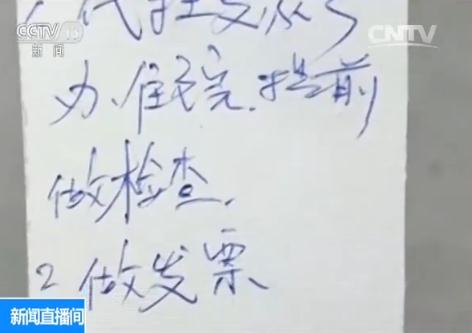 CCTV 13
新闻
CNTV
代挂
办住院.提前
做检查.
2 做发票
新闻直播间